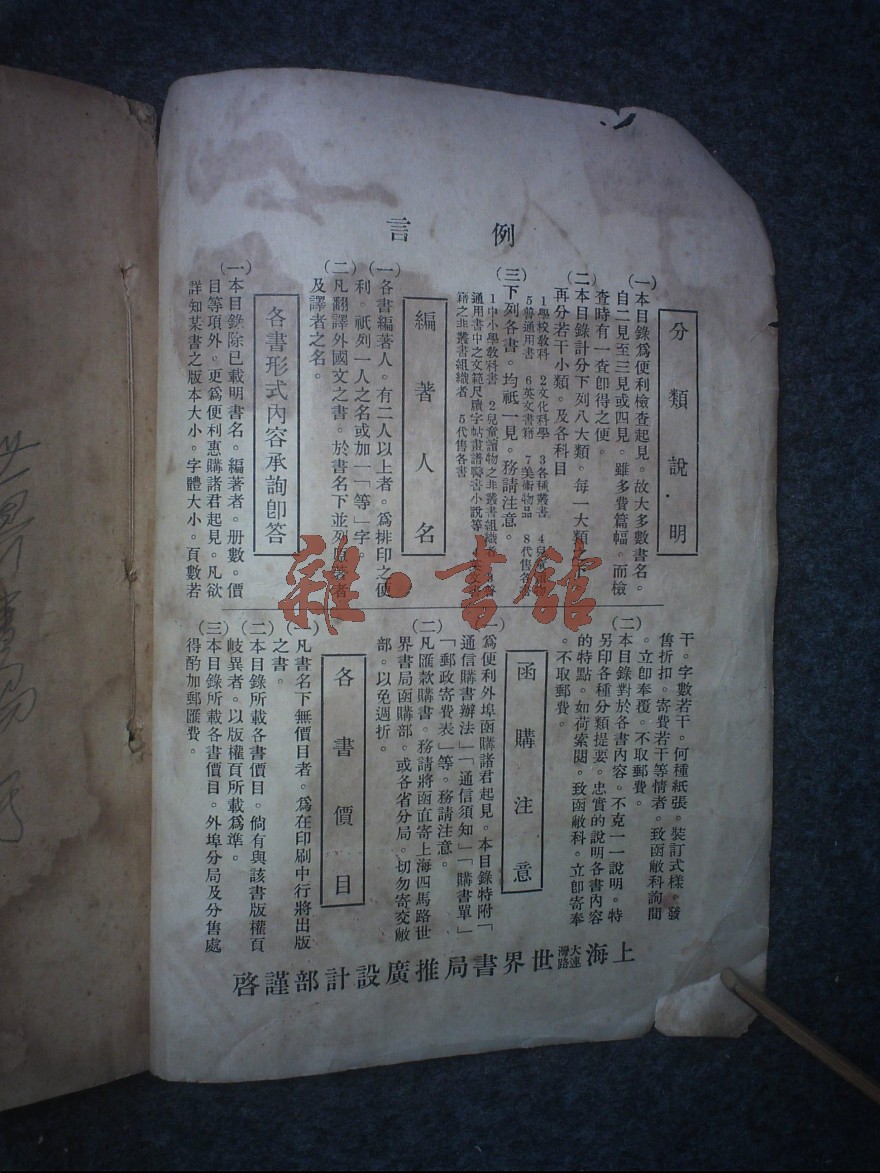 例言
分類說明
(一)本目錄爲便利檢查起見。故大多數書名。
自二見至三見或四見。雖多費篇幅。而檢
查時有一查卽得之便。
(二)本目錄計分下列八大類。每一大類之下
再分若干小類。及各科目
1學校敎科 2文化科學 3各種叢書 4兒童讀物
5普通用書 6英文書籍 7美術物品 8代售各書
(三)下列各書。均祇一見。務請注意。
1中小學敎科書 2兒童讀物之非叢書組織者 3普
通用書中之文範尺牘字帖畫譜醫書小說等 4英文書
籍之非叢書組織者 5代售各書
編著人名
(一)各書編著人。有二人以上者。爲排印之便
利。祇列一人之名或加一「等」字。
(二)凡翻譯外國文之書。於書名下並列原著者
及譯者之名。
各書形式內容承詢卽答
(一)本目錄除已載明書名。編著者。册數。價
目等項外。更爲便利惠購諸君起見。凡欲
詳知某書之版本大小。字體大小。頁數若
干。字數若干。何種紙張。裝訂式樣。發
售折扣。寄費若干等情者。致函敝科詢問
。立卽奉覆。不取郵費。
(二)本目錄對於各書內容。不克一一說明。特
另印各種分類提要。忠實的說明各書內容
的特點。如荷索閱。致函敝科。立卽寄奉
。不取郵費。
函購注意
(一)爲便利外埠函購諸君起見。本目錄特附「
通信購書辦法」「通信須知」「購書單」
「郵政寄費表」等。務請注意。
(二)凡匯款購書。務請將函直寄上海四馬路世
界書局函購部。或各省分局。切勿寄交敝
部。以免週折。
各書價目
(一)凡書名下無價目者。爲在印刷中行將出版
之書。
(二)本目錄所載各書價目。倘有與該書版權頁
岐異者。以版權頁所載爲準。
(三)本目錄所載各書價目。外埠分局及分售處
得酌加郵匯費。
上海大連灣路世界書局推廣設計部謹啓
雜·書館
世界書局